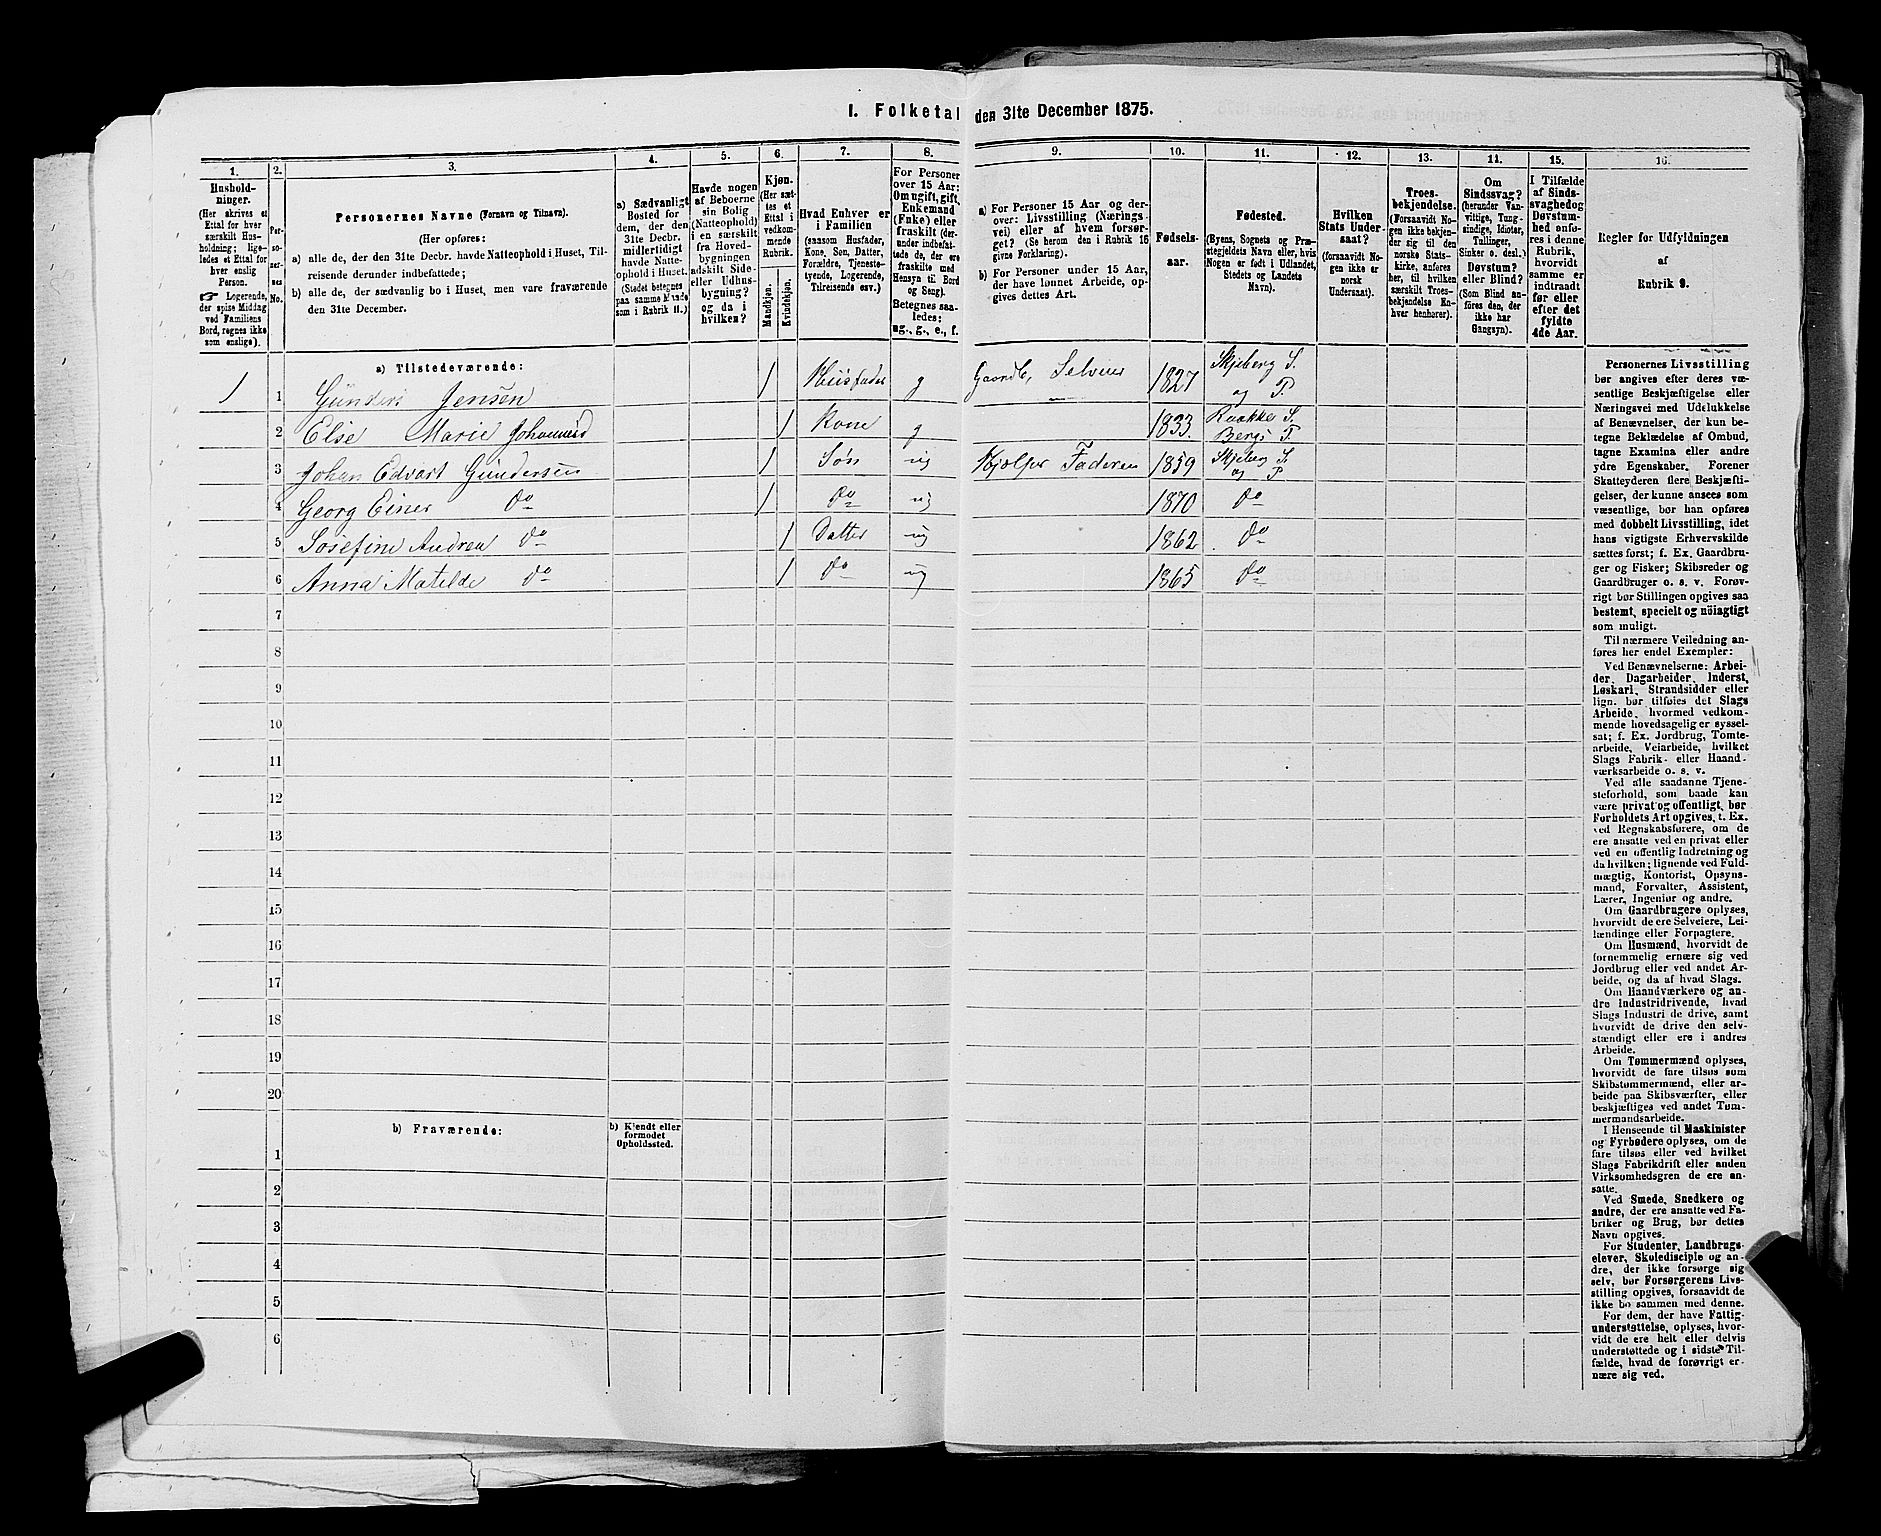 I. Folketal den 31te December 1875.
1.
2.
3.
4.
5.
6.
7.
8.
9.
10.
11.
12.
13.
14.
15.
16.
Hushold-
ninger.
(Her skrives et
Ettal for hver
særskilt Hus-
holdning; lige-
ledes et Ettal for
hver enslig
Person.
☞ Logerende,
der spise Middag
ved Familiens
Bord, regnes ikke
som enslige).
Per-
so-
ner-
nes
No.
Personernes Navne (Fornavn og Tilnavn).
(Her opføres:
a) alle de, der den 31te Decbr. havde Natteophold i Huset, Til-
reisende derunder indbefattede;
b) alle de, der sædvanlig bo i Huset, men vare fraværende
den 31te December.
a) Sædvanligt
Bosted for
dem, der den
31te Decbr.
midlertidigt
havde Natte-
ophold i Huset.
(Stedet betegnes
paa samme Maade
som i Rubrik 11.)
Havde nogen
af Beboerne
sin Bolig
(Natteophold)
i en særskilt
fra Hoved-
bygningen
adskilt Side-
eller Udhus-
bygning?
og da i
hvilken?
Kjøn.
(Her sæt-
tes et
Ettal i
vedkom-
mende
Rubrik.
Mandkjøn.
Kvindekjøn.
Hvad Enhver er
i Familien
(saasom Husfader,
Kone, Søn, Datter,
Forældre, Tjeneste-
tyende, Logerende,
Tilreisende osv.)
For Personer
over 15 Aar:
Om ugift, gift,
Enkemand
(Enke) eller
fraskilt (der-
under indbefat-
tede de, der ere
fraskilte med
Hensyn til Bord
og Seng).
Betegnes saa-
ledes:
ug., g., e., f.
a) For Personer 15 Aar og der-
over: Livsstilling (Nærings-
vei) eller af hvem forsør-
get? (Se herom den i Rubrik 16
givne Forklaring).
b) For Personer under 15 Aar,
der have lønnet Arbeide, op-
gives dettes Art.
Fødsels-
aar.
Fødested.
(Byens, Sognets og Præ-
stegjeldets Navn eller, hvis
Nogen er født i Udlandet,
Stedets og Landets
Navn).
Hvilken
Stats Under-
saat?
(forsaavidt No-
gen ikke er
norsk
Undersaat).
Troes-
bekjendelse.
(Forsaavidt No-
gen ikke bekjen-
der sig til den
norske Stats-
kirke, anføres
her, til hvilken
særskilt Troes-
bekjendelse En-
hver henhører).
Om
Sindssvag?
(herunder Van-
vittige, Tung-
sindige, Idioter,
Tullinger,
Sinker o. desl.)
Døvstum?
eller Blind?
(Som Blind an-
føres den, der
ikke har
Gangsyn).
I Tilfælde
af Sinds-
svaghed og
Døvstum-
hed anfø-
res i denne
Rubrik,
hvorvidt
samme er
indtraadt
før eller
efter det
fyldte
4de Aar.
Regler for Udfyldningen
af
Rubrik 9.
a) Tilstedeværende:
1 1 Gunder Jensen 1 Husfader g Gaardb, Selveier 1827 Skjeberg S. og P.
2 Else Marie 1 Kone g 1833. Raakke S. Bergs P.
3 Johan Edvart Gundersen 1 Søn ug Hjælper Faderen 1859 Skjeberg S. og P
4 Georg Einer do 1 do ug 1870 do
5 Josefine Andrea do 1 Datter ug 1862 do
6 Anna Matilde do 1 do ug 1865 do
7
8
9
10
11
12
13
14
15
16
17
18
19
20
b) Fraværende:
b) Kjendt eller
formodet
Opholdssted.
1
2
3
4
5
6
Personernes Livsstilling
bør angives efter deres væ-
sentlige Beskjæftigelse eller
Næringsvei med Udelukkelse
af Benævnelser, der kun be-
tegne Beklædelse af Ombud,
tagne Examina eller andre
ydre Egenskaber. Forener
Skatteyderen flere Beskjæfti-
gelser, der kunne ansees som
væsentlige, bør han opføres
med dobbelt Livsstilling, idet
hans vigtigste Erhvervskilde
sættes først; f. Ex. Gaardbru-
ger og Fisker; Skibsreder og
Gaardbruger o. s. v. Forøv-
rigt bør Stillingen opgives saa
bestemt, specielt og nöiagtigt
som muligt.
Til nærmere Veiledning an-
føres her endel Exempler:
Ved Benævnelserne: Arbei-
der, Dagarbeider, Inderst,
Løskarl, Strandsidder eller
lign. bør tilføies det Slags
Arbeide, hvormed vedkom-
mende hovedsagelig er syssel-
sat; f. Ex. Jordbrug, Tomte-
arbeide, Veiarbeide, hvilket
Slags Fabrik- eller Haand-
værksarbeide o. s. v.
Ved alle saadanne Tjene-
steforhold, som baade kan
være privat og offentligt, bør
Forholdets Art opgives, t. Ex.
ved Regnskabsførere, om de
ere ansatte ved en privat eller
ved en offentlig Indretning og
da hvilken; lignende ved Fuld-
mægtig, Kontorist, Opsyns-
mand, Forvalter, Assistent,
Lærer, Ingeniør og andre.
Om Gaardbrugere oplyses,
hvorvidt de ere Selveiere, Lei-
lændinge eller Forpagtere.
Om Husmænd, hvorvidt de
fornemmelig ernære sig ved
Jordbrug eller ved andet Ar-
beide, og da af hvad Slags.
Om Haandværkere og an-
dre Industridrivende, hvad
Slags Industri de drive, samt
hvorvidt de drive den selv-
stændigt eller ere i andres
Arbeide.
Om Tømmermænd oplyses,
hvorvidt de fare tilsøs som
Skibstømmermænd, eller ar-
beide paa Skibsværfter, eller
beskjæftiges ved andet Tøm-
mermandsarbeide.
I Henseende til Maskinister
og Fyrbødere oplyses, om de
fare tilsøs eller ved hvilket
Slags Fabrikdrift eller anden
Virksomhedsgren de ere an-
satte.
Ved Smede, Snedkere og
andre, der ere ansatte ved Fa-
briker og Brug, bør dettes
Navn opgives.
For Studenter, Landbrugs-
elever, Skoledisciple og an-
dre, der ikke forsørge sig
selv, bør Forsørgerens Livs-
stilling opgives, forsaavidt de
ikke bo sammen med denne.
For dem, der have Fattig-
understøttelse, oplyses, hvor-
vidt de ere helt eller delvis
understøttede og i sidste Til-
fælde, hvad de forøvrigt er-
nære sig ved.